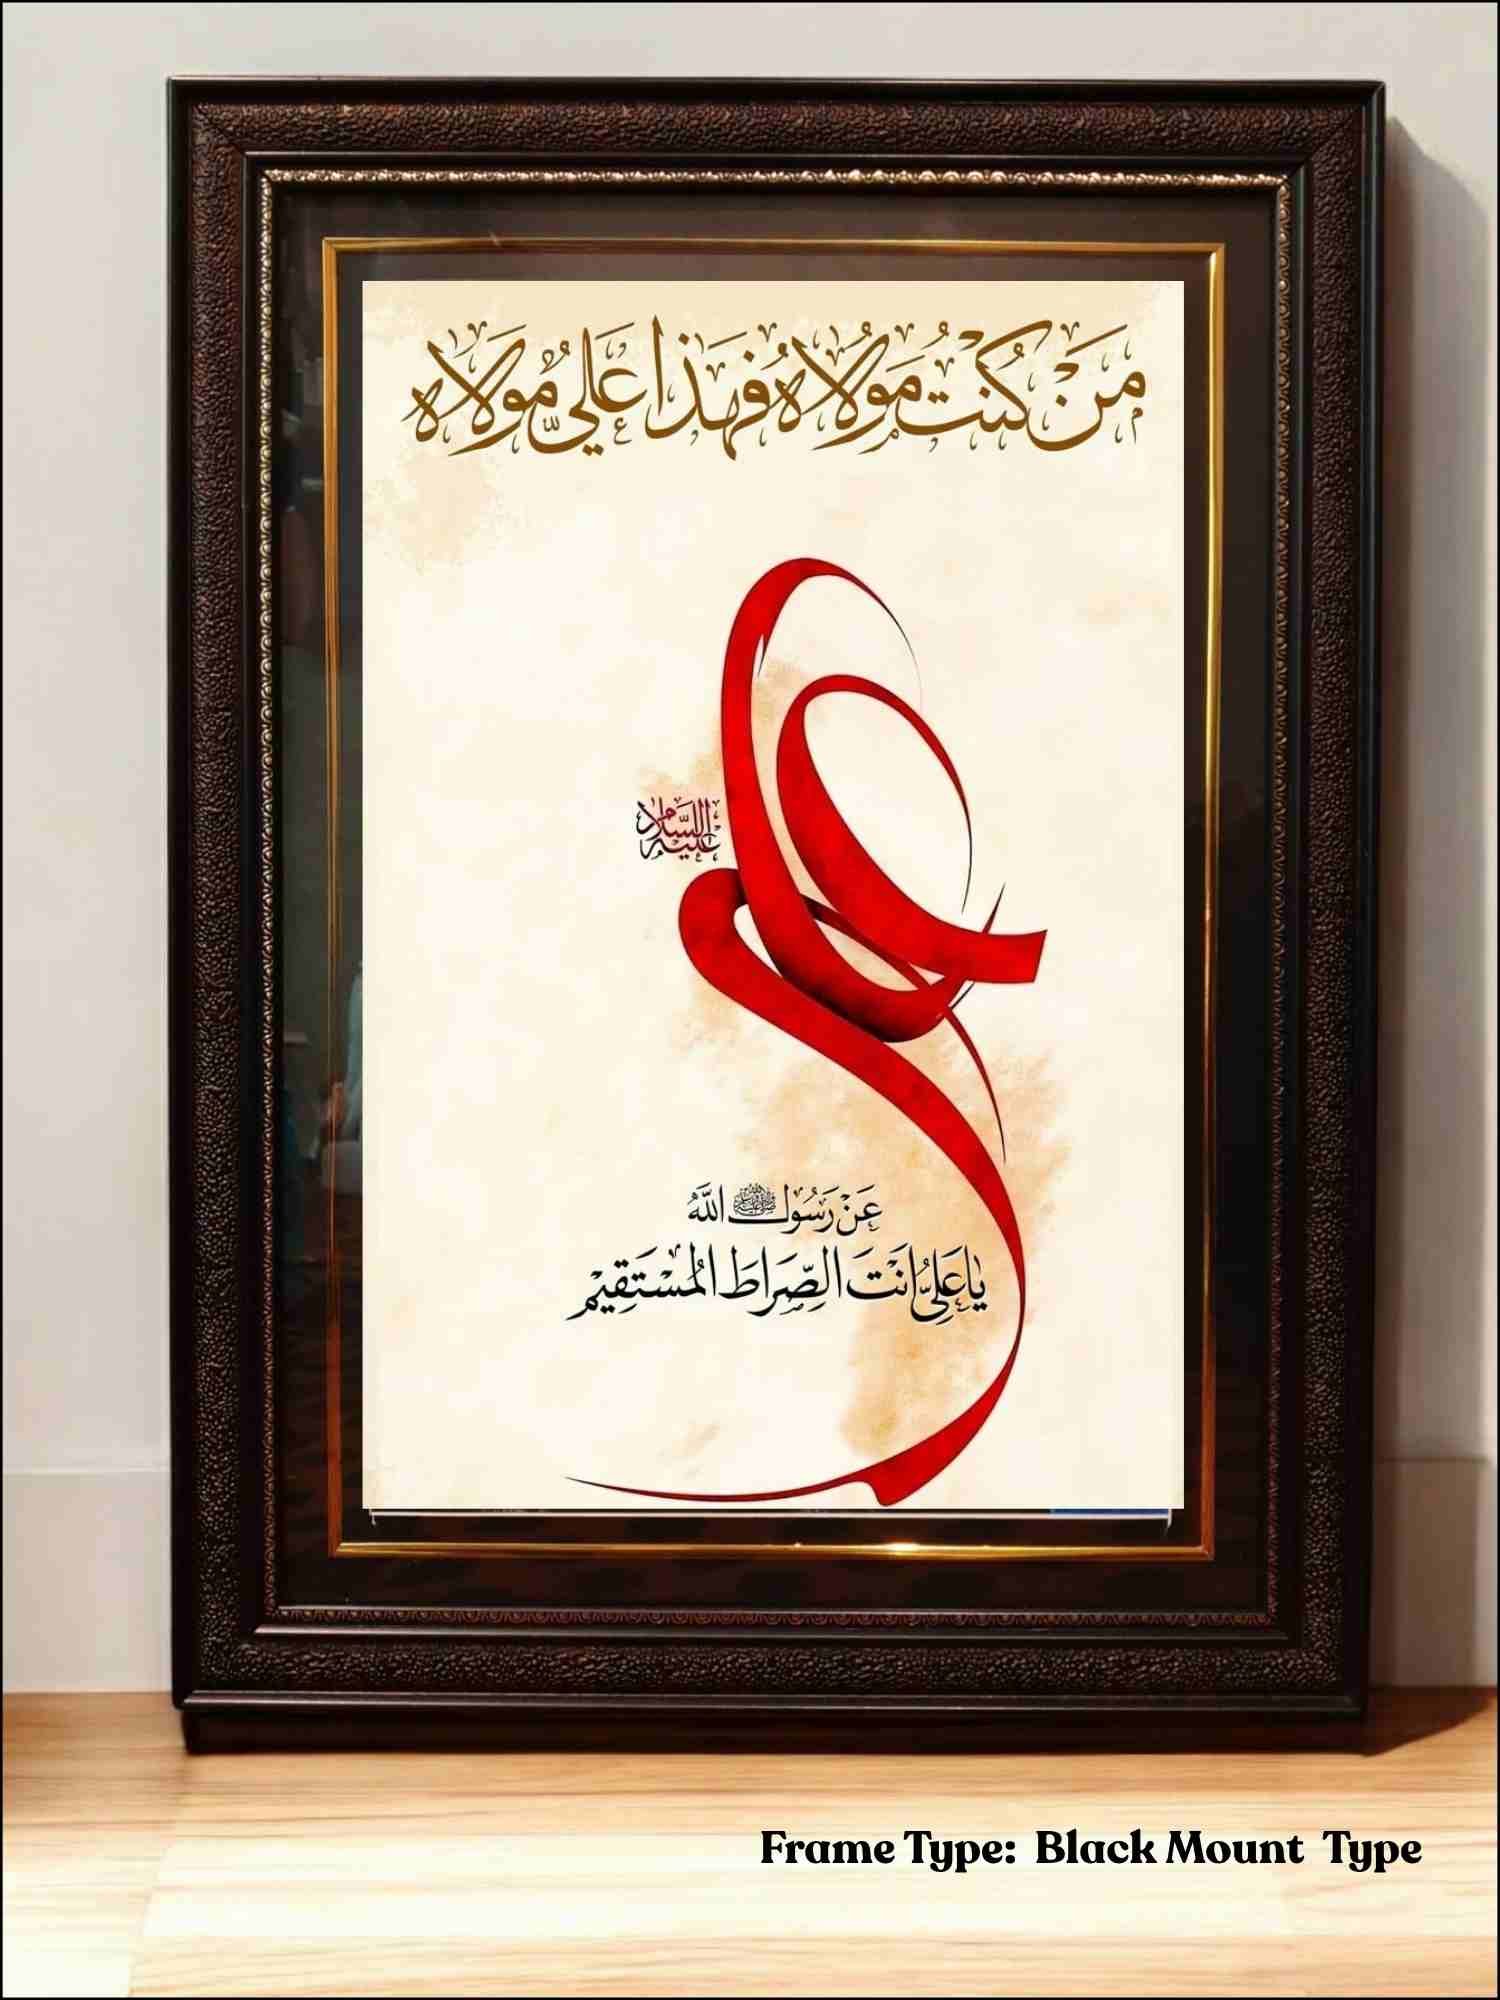 مَنْ كُنْتُ مَوْلَاهُ فَهَذَا عَلِيٌّ مَوْلَاه
علي
عليه السلام
عَنْ رَسُولُ اللَّهُ ﷺ
يَا عَلِيُّ اَنْتَ الصِّرَاطَ الْمُسْتَقِيمْ
Frame Type: Black Mount Type